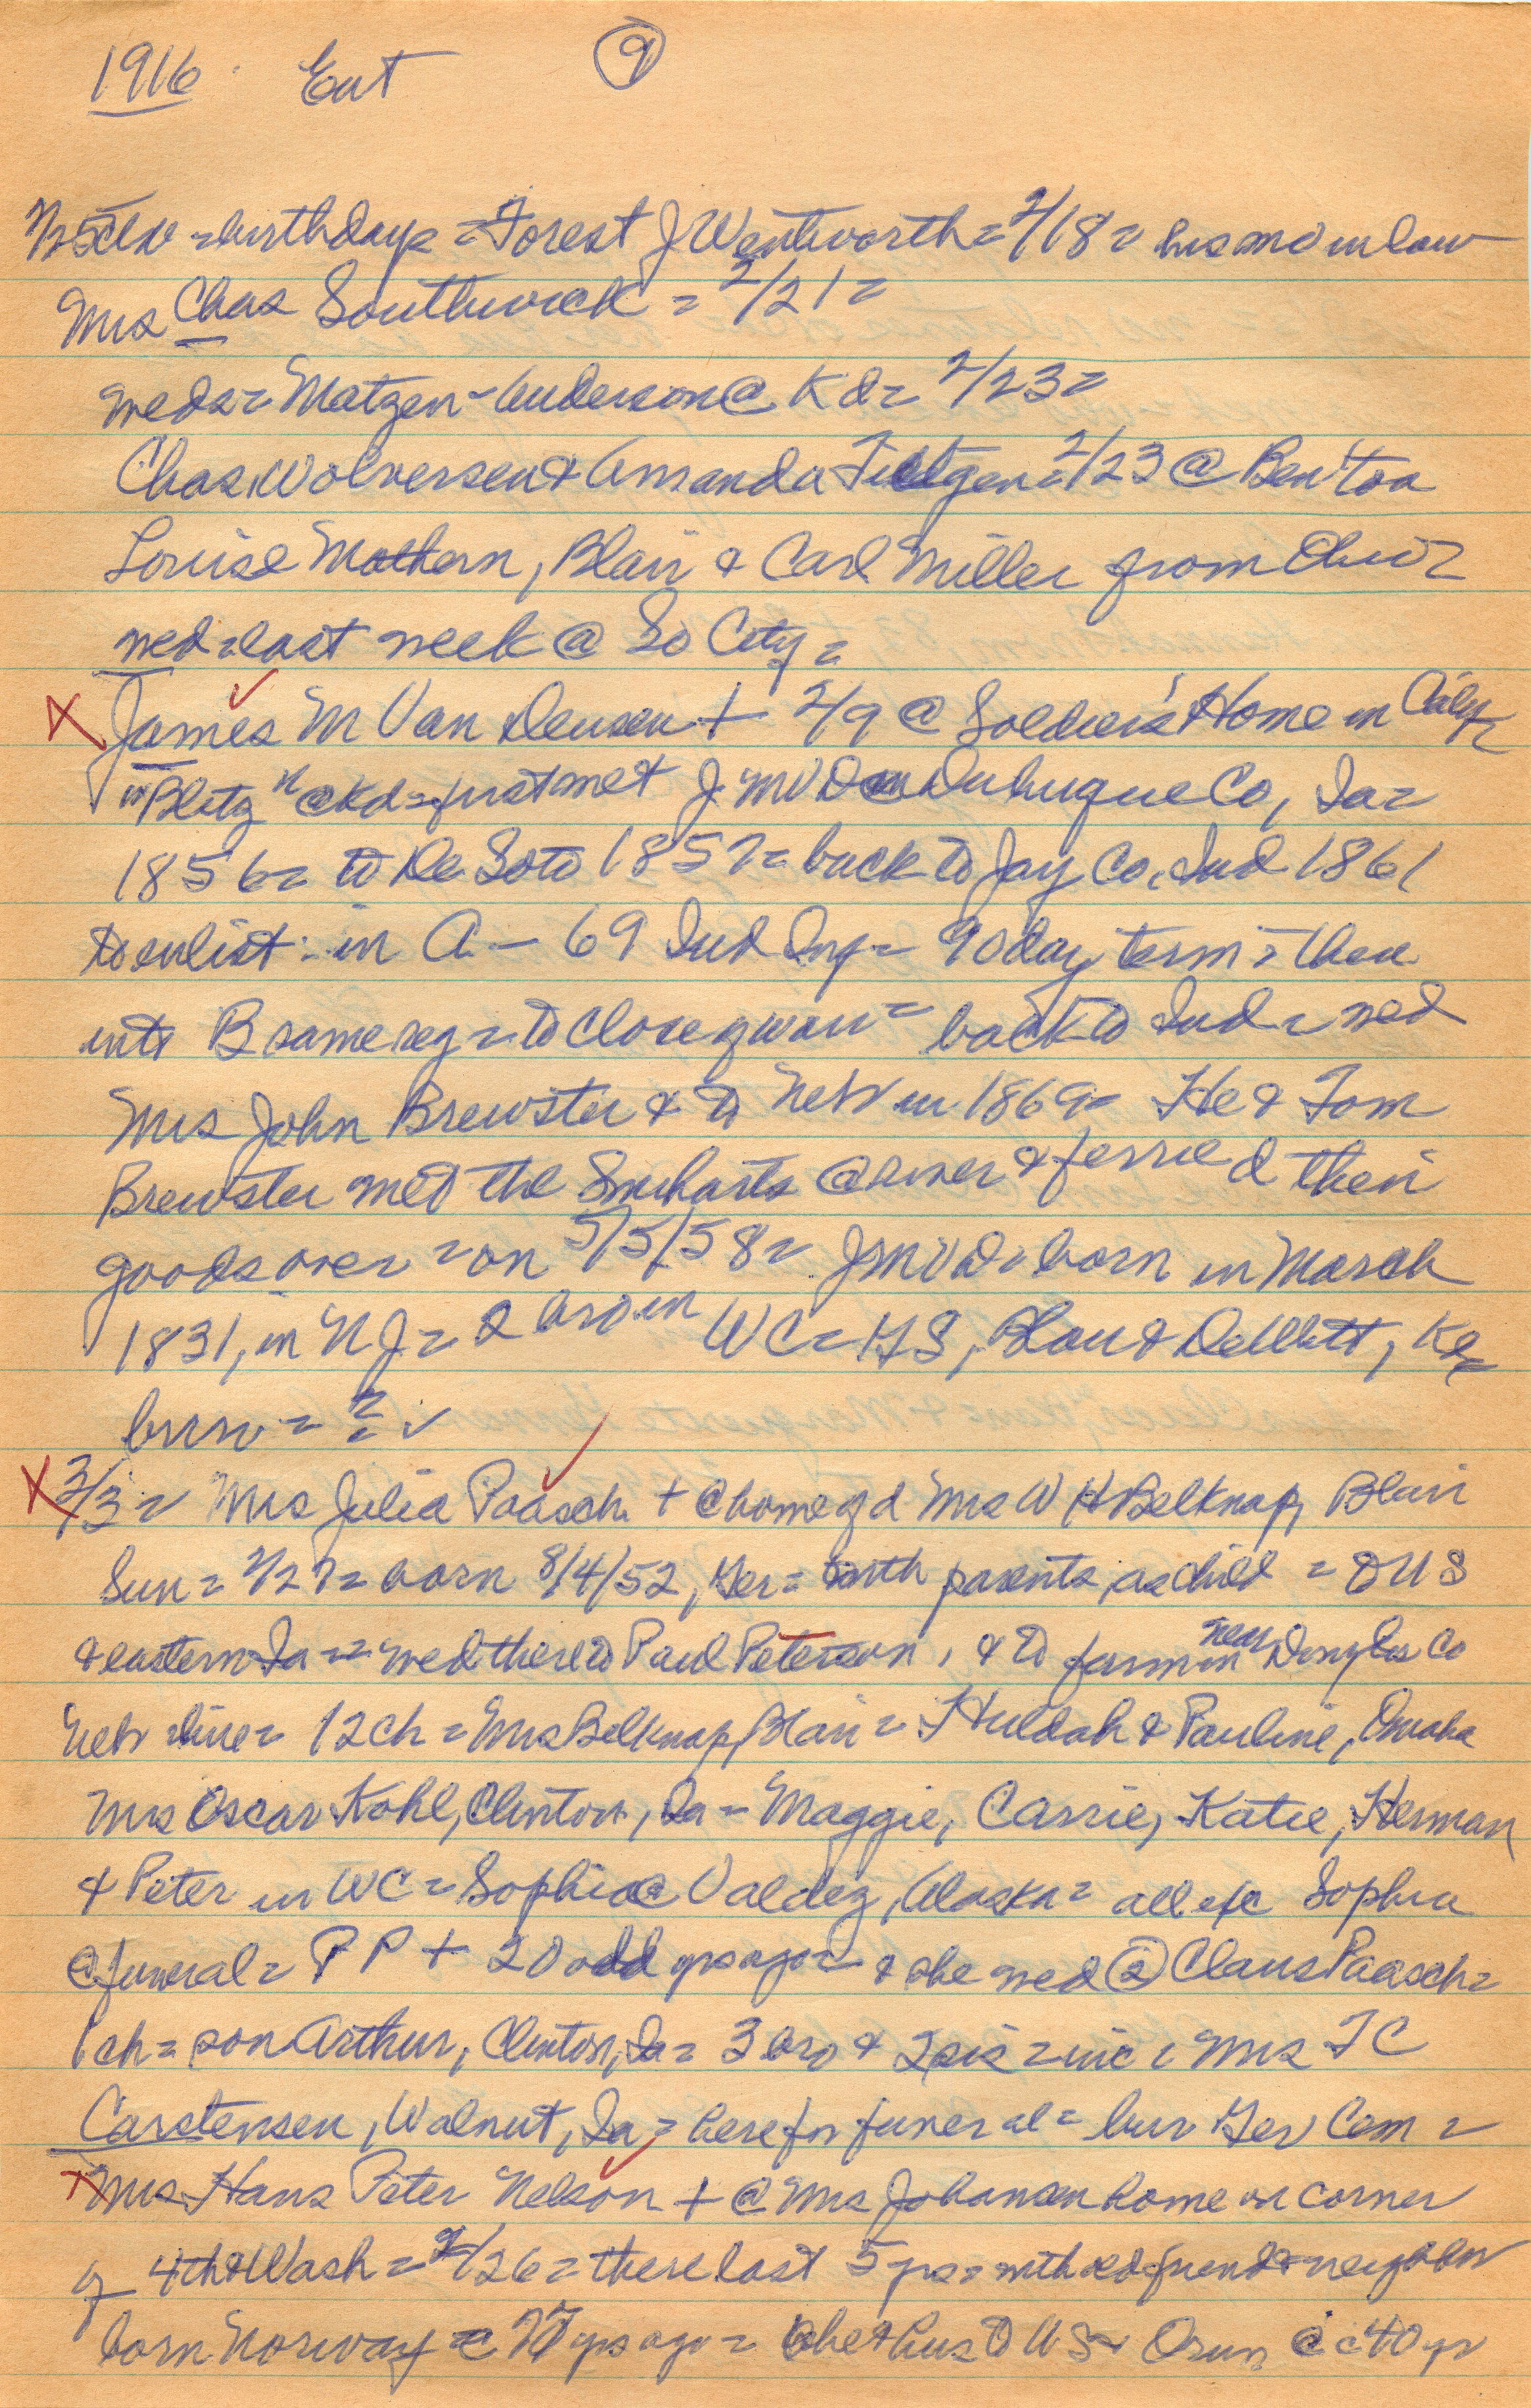 1916 Ent 9
birthdays = Forest J Wentworth = 2/18 = his mo in law
Mrs Chas Southwick = 2/21 =
weds = Matzen - Anderson @ Kd = 2/23 =
Chas Wolversen & Amanda 2/23 @ Benton
Louise Mathern, Blair & Carl Miller from
wed = last week @ So City =
X James M Van Deusen + 2/9 @ Soldiers' Home in Calif =
"Blitz" @ Kd = first met J M V D in Dubuque Co, Ia =
1856 = to De Soto 1857 = back to Jay Co, Ind 1861
to enlist: in A - 69 Ind Inf = 90 day term = then
into B same reg = to close of war = back to Ind = wed
Mrs John Brewster & to Neb in 1869 = He & Tom
Brewster met the @ river & ferried their
goods over = on 5/5/58 = J M V D = born in March
1831, in N J = 2 bro in WC = H S, Blair & DeWitt, Ke =
= ? ✓
X 3/3 = Mrs Julia Paasch + @ home of d Mrs W H Belknap, Blair
Sun = 2/27 = born 8/4/52, Ger = with parents, as child = to U S
& eastern Ia = wed there to Paul Peterson, & to farm in near Douglas Co
Neb line = 12 ch = Mrs Belknap, Blair = Huldah & Pauline, Omaha
Mrs Oscar Kohl, Clinton, Ia = Maggie, Carrie, Katie, Herman
& Peter in WC = Sophia @ Valdez, Alaska = all exc Sophia
@ funeral = P P + 20 odd yrs ago = & she wed (2) Claus Paasch =
1 ch = son Arthur, Clinton, Ia = 3 bro & 2 sis = inc = Mrs F C
Carstensen, Walnut, Ia = here for funeral = bur Ger Cem =
X Mrs Hans Peter Nelson + @ Mrs Johansen home on corner
of 4th & Wash = 2/26 = there last 5 yrs = with old friend & neighbor
born Norway c 77 yrs ago = she & hus to U S = Orum c 40 yr